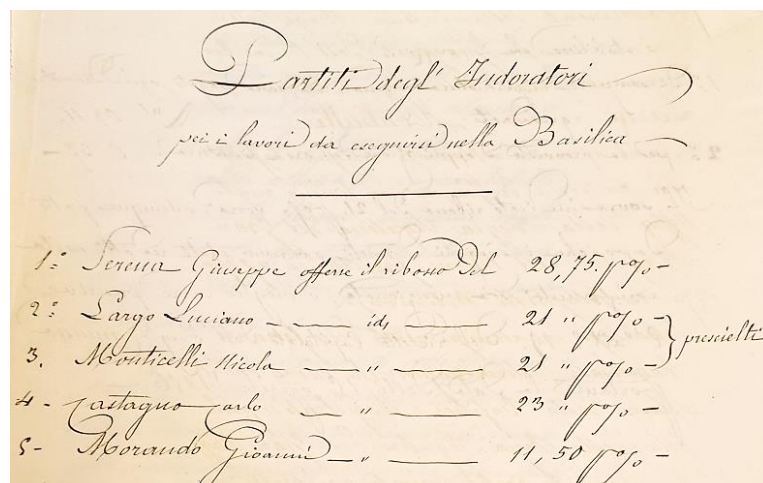 Partiti degl' Indoratori
pei i lavori da eseguirsi nella Basilica
1.° Perena Giuseppe offerse il ribasso del 28,75. p% -
2.° Largo Luciano - id. 21 " p% -
prescielti
3. Monticelli Nicola " 21 " p% -
4 - Castagno Carlo " 23 " p% -
5 - Morando Gioanni - " 11,50 p% -